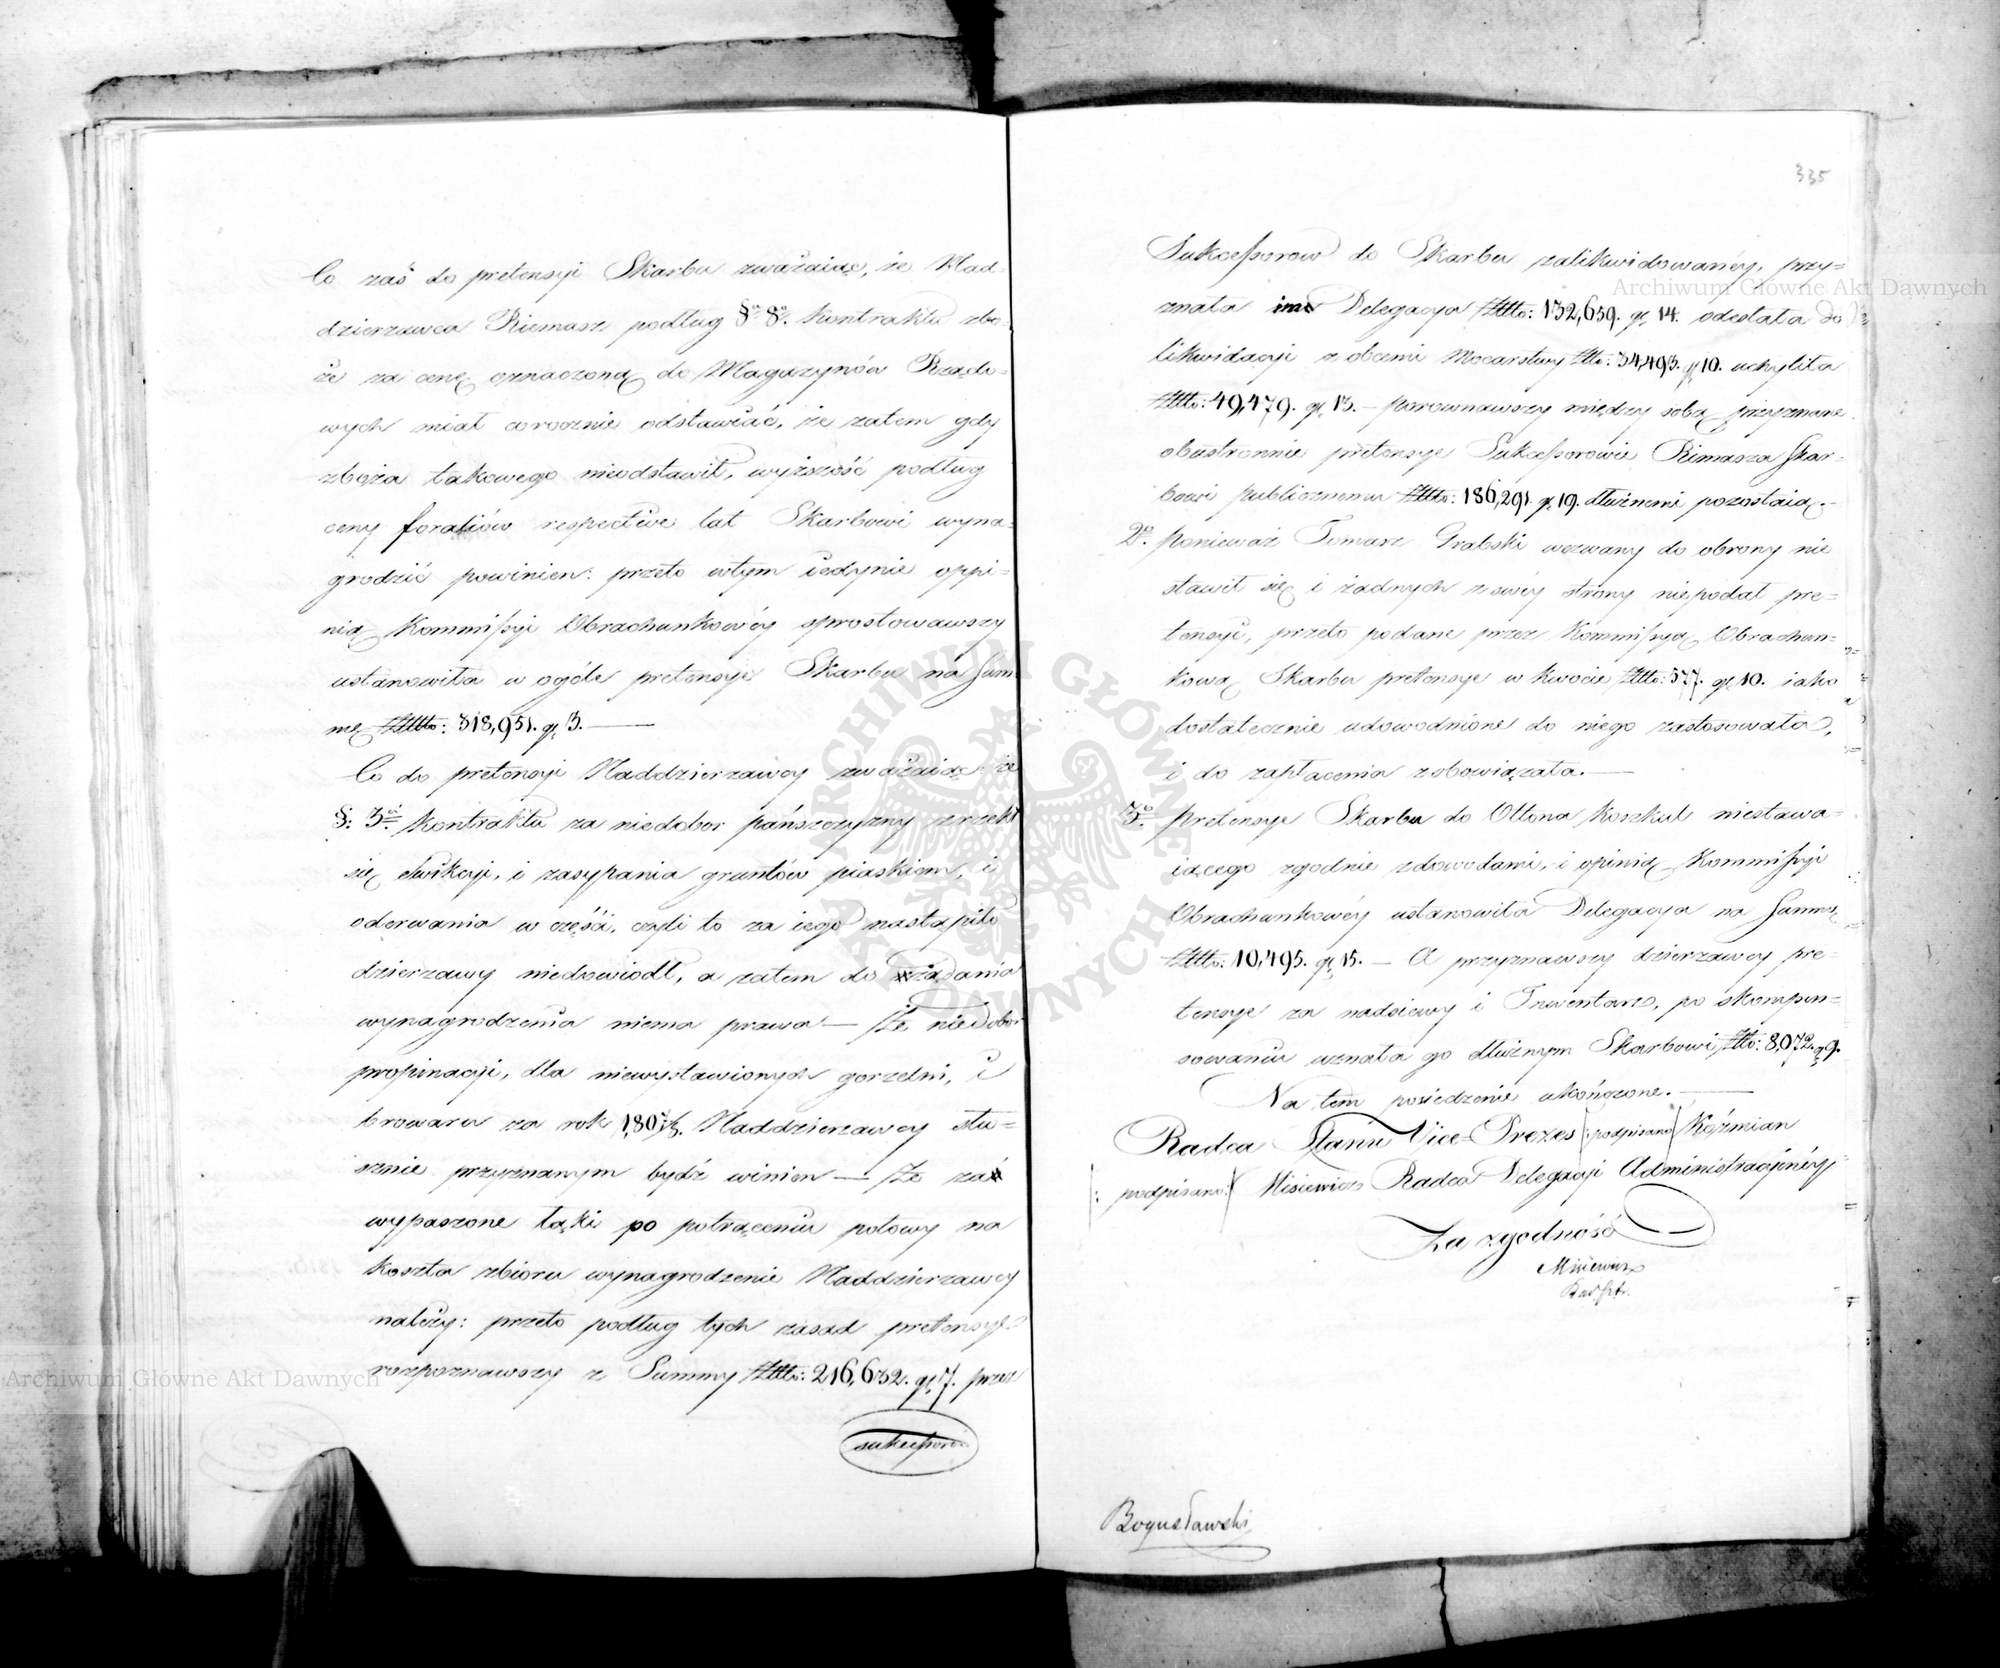 Co zaś do pretensyi Skarbu zważaiąc, że Nad-
dzierzawca Riemasz podług §o 8o. Kontraktu zbo-
że za cenę oznaczoną do Magazynów Rządo-
wych miał corocznie odstawiać, że zatem gdy
zboża takowego nieodstawił, wyższość podług
ceny foraliów respective lat Skarbowi wyna-
grodzić powinien: przeto wtym iedynie oppi-
nią Kommissyi Obrachunkowéy sprostowawszy
ustanowiła w ogóle pretensye Skarbu na Sum-
mę Złło: 318,951. gr 3. —
Co do pretensyi Naddzierzawcy zważaiąc że
§: 3o. Kontraktu za niedobor pańszczyzny zrzekł
się ewikcyi, i zasypania gruntów piaskiem, i
oderwania w części, czyli to za iego nastąpiło
dzierzawy niedowiodł, a zatem do żądania
wynagrodzenia niema prawa — Że niedobor
propinacyi, dla niewystawionych gorzelni, i
browaru za rok 1807/8. Naddzierzawcy słu-
sznie przyznanym bydź winien — Że zaś
wypaszone łąki po potrąceniu połowy na
koszta zbioru wynagrodzenie Naddzierzawcy
należy: przeto podług tych zasad pretensye
rozpoznawszy z Summy Złło: 216,632. gr 7. przez
sukcessorów
335
Sukcessorow do Skarbu zalikwidowanéy, przy-
znała im Delegacya Złło: 132,659. gr 14. odesłała do
likwidacyi z obcemi Mocarstwy Złło: 34,493. gr 10. uchyliła
Złło: 49,479. gr 13. — porownawszy między sobą przyznane
obustronnie pretensye Sukcessorowie Riemasza Skar-
bowi publicznemu Złło: 186,291 gr 19. dłużnemi pozostaią.—
2o. ponieważ Tomasz Grabski wezwany do obrony nie
stawił się i żadnych z swéy strony niepodał pre-
tensyi, przeto podane przez Kommissyą Obrachun-
kową Skarbu pretensye w kwocie Złło: 577. gr 10. iako
dostatecznie udowodnione do niego zastosowała,
i do zapłacenia zobowiązała.—
3o. pretensye Skarbu do Ottona Koszkul niestawa-
iącego zgodnie z dowodami, i opinią Kommissyi
Obrachunkowéy ustanowiła Delegacya na Summę
Złło: 10,495. gr 15. — A przyznawszy dzierzawcy pre-
tensye za nadsiewy i Inwentarz, po skompen-
sowaniu uznała go dłużnym Skarbowi Złło: 8,072. gr 9.
Na tem posiedzenie ukończone. —
Radca Stanu Vice-Prezes /: podpisano / Koźmian
/: podpisano: / Misiewicz Radca Delegacyi Administracyinéy
Za zgodność
Misiewicz
Bogusławski
Archiwum Główne Akt Dawnych
Archiwum Główne Akt Dawnych
ARCHIWUM GŁÓWNE AKT DAWNYCH